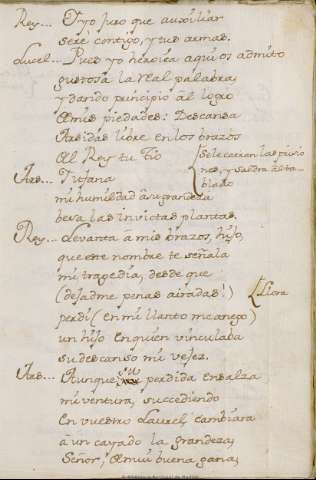 Rey... Y yo juro que auxiliar
seré contigo, y tus armas.
Lucel... Pues yo heroica aqui os admito
gustosa la real palabra,
y dando principio al logro
de mis piedades: Descansa
Arsidas libre en los brazos
del Rey tu Tio
se le caeran las prisio
nes, y saldra al ta-
blado
Ars... Ufana
mi humildad à su grandeza
besa las invictas plantas.
Rey... Levanta à mis brazos, hijo,
que este nombre te señala
mi tragedia, desde que
(dejadme penas airadas!)
Llora
perdi (en mi llanto me anego)
un hijo en quien vinculaba
su descanso mi vejez.
Ars... Aunque su perdida ensalza
mi ventura, succediendo
en vuestro Laurel, cambiara
à un cayado la grandeza,
Señor, de mui buena gana,